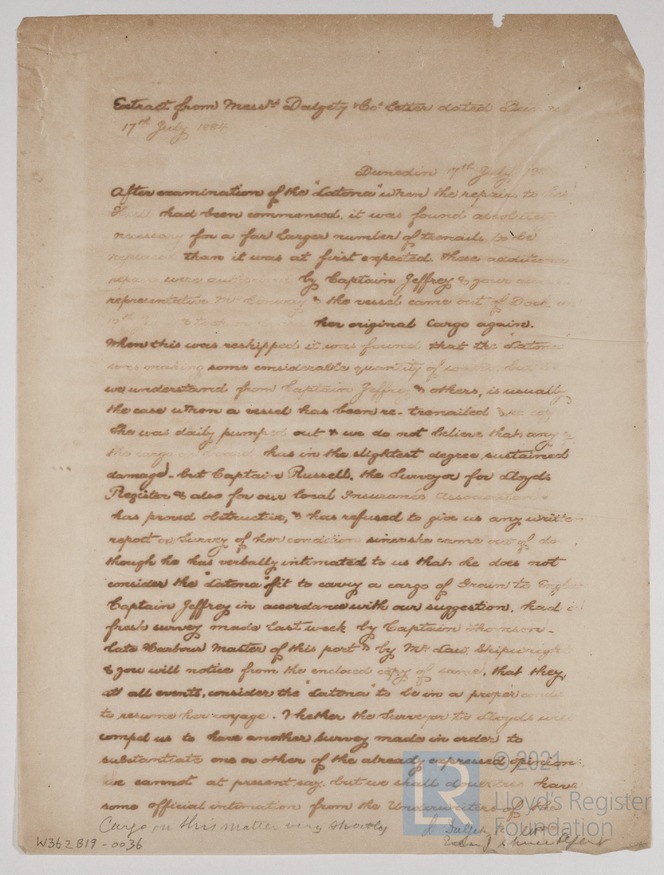 Extract from Mess.rs Dalgety & Co.s letter dated
17th July 1884
Dunedin 17th July
After examination of the "Latona" when the repairs to
had been commenced, it was found
necessary for a far larger number of trenails to be
replaced than it was at first expected these
were by Captain Jeffrey & your
representative Mr & the vessel came out of Dock
her original Cargo again.
When this was reshipped it was found that the "Latona"
was making some considerable quantity of
we understand from Captain Jeffrey & others, is usually
the case when a vessel has been re-trenailed
She was daily pumped out & we do not believe that any
the cargo has in the slightest degree sustained
damage, but Captain Russell, the Surveyor for Lloyds
Register & also for our local Insurance Association
has proved obstructive, & has refused to give us any
report on Survey of her condition since she came out of
though he has verbally intimated to us that he does not
consider the "Latona" fit to carry a cargo of to
Captain Jeffrey in accordance with our suggestion, had
fresh survey made last week by Captain Thomson -
late Harbour Master of this port & by Mr Law, Shipwright
& you will notice from the enclosed copy of same, that they,
at all events, consider the "Latona" to be in a proper
to resume her voyage. Whether the Surveyor to Lloyds will
compel us to have another Survey made in order to
substantiate one or other of the already expressed opinions
we cannot at present say, but we shall doubtless have
some official intimation from the Underwriters of the
Cargo on this matter very shortly
W362819-0036
LR
© 2021
Lloyd's Register
Foundation